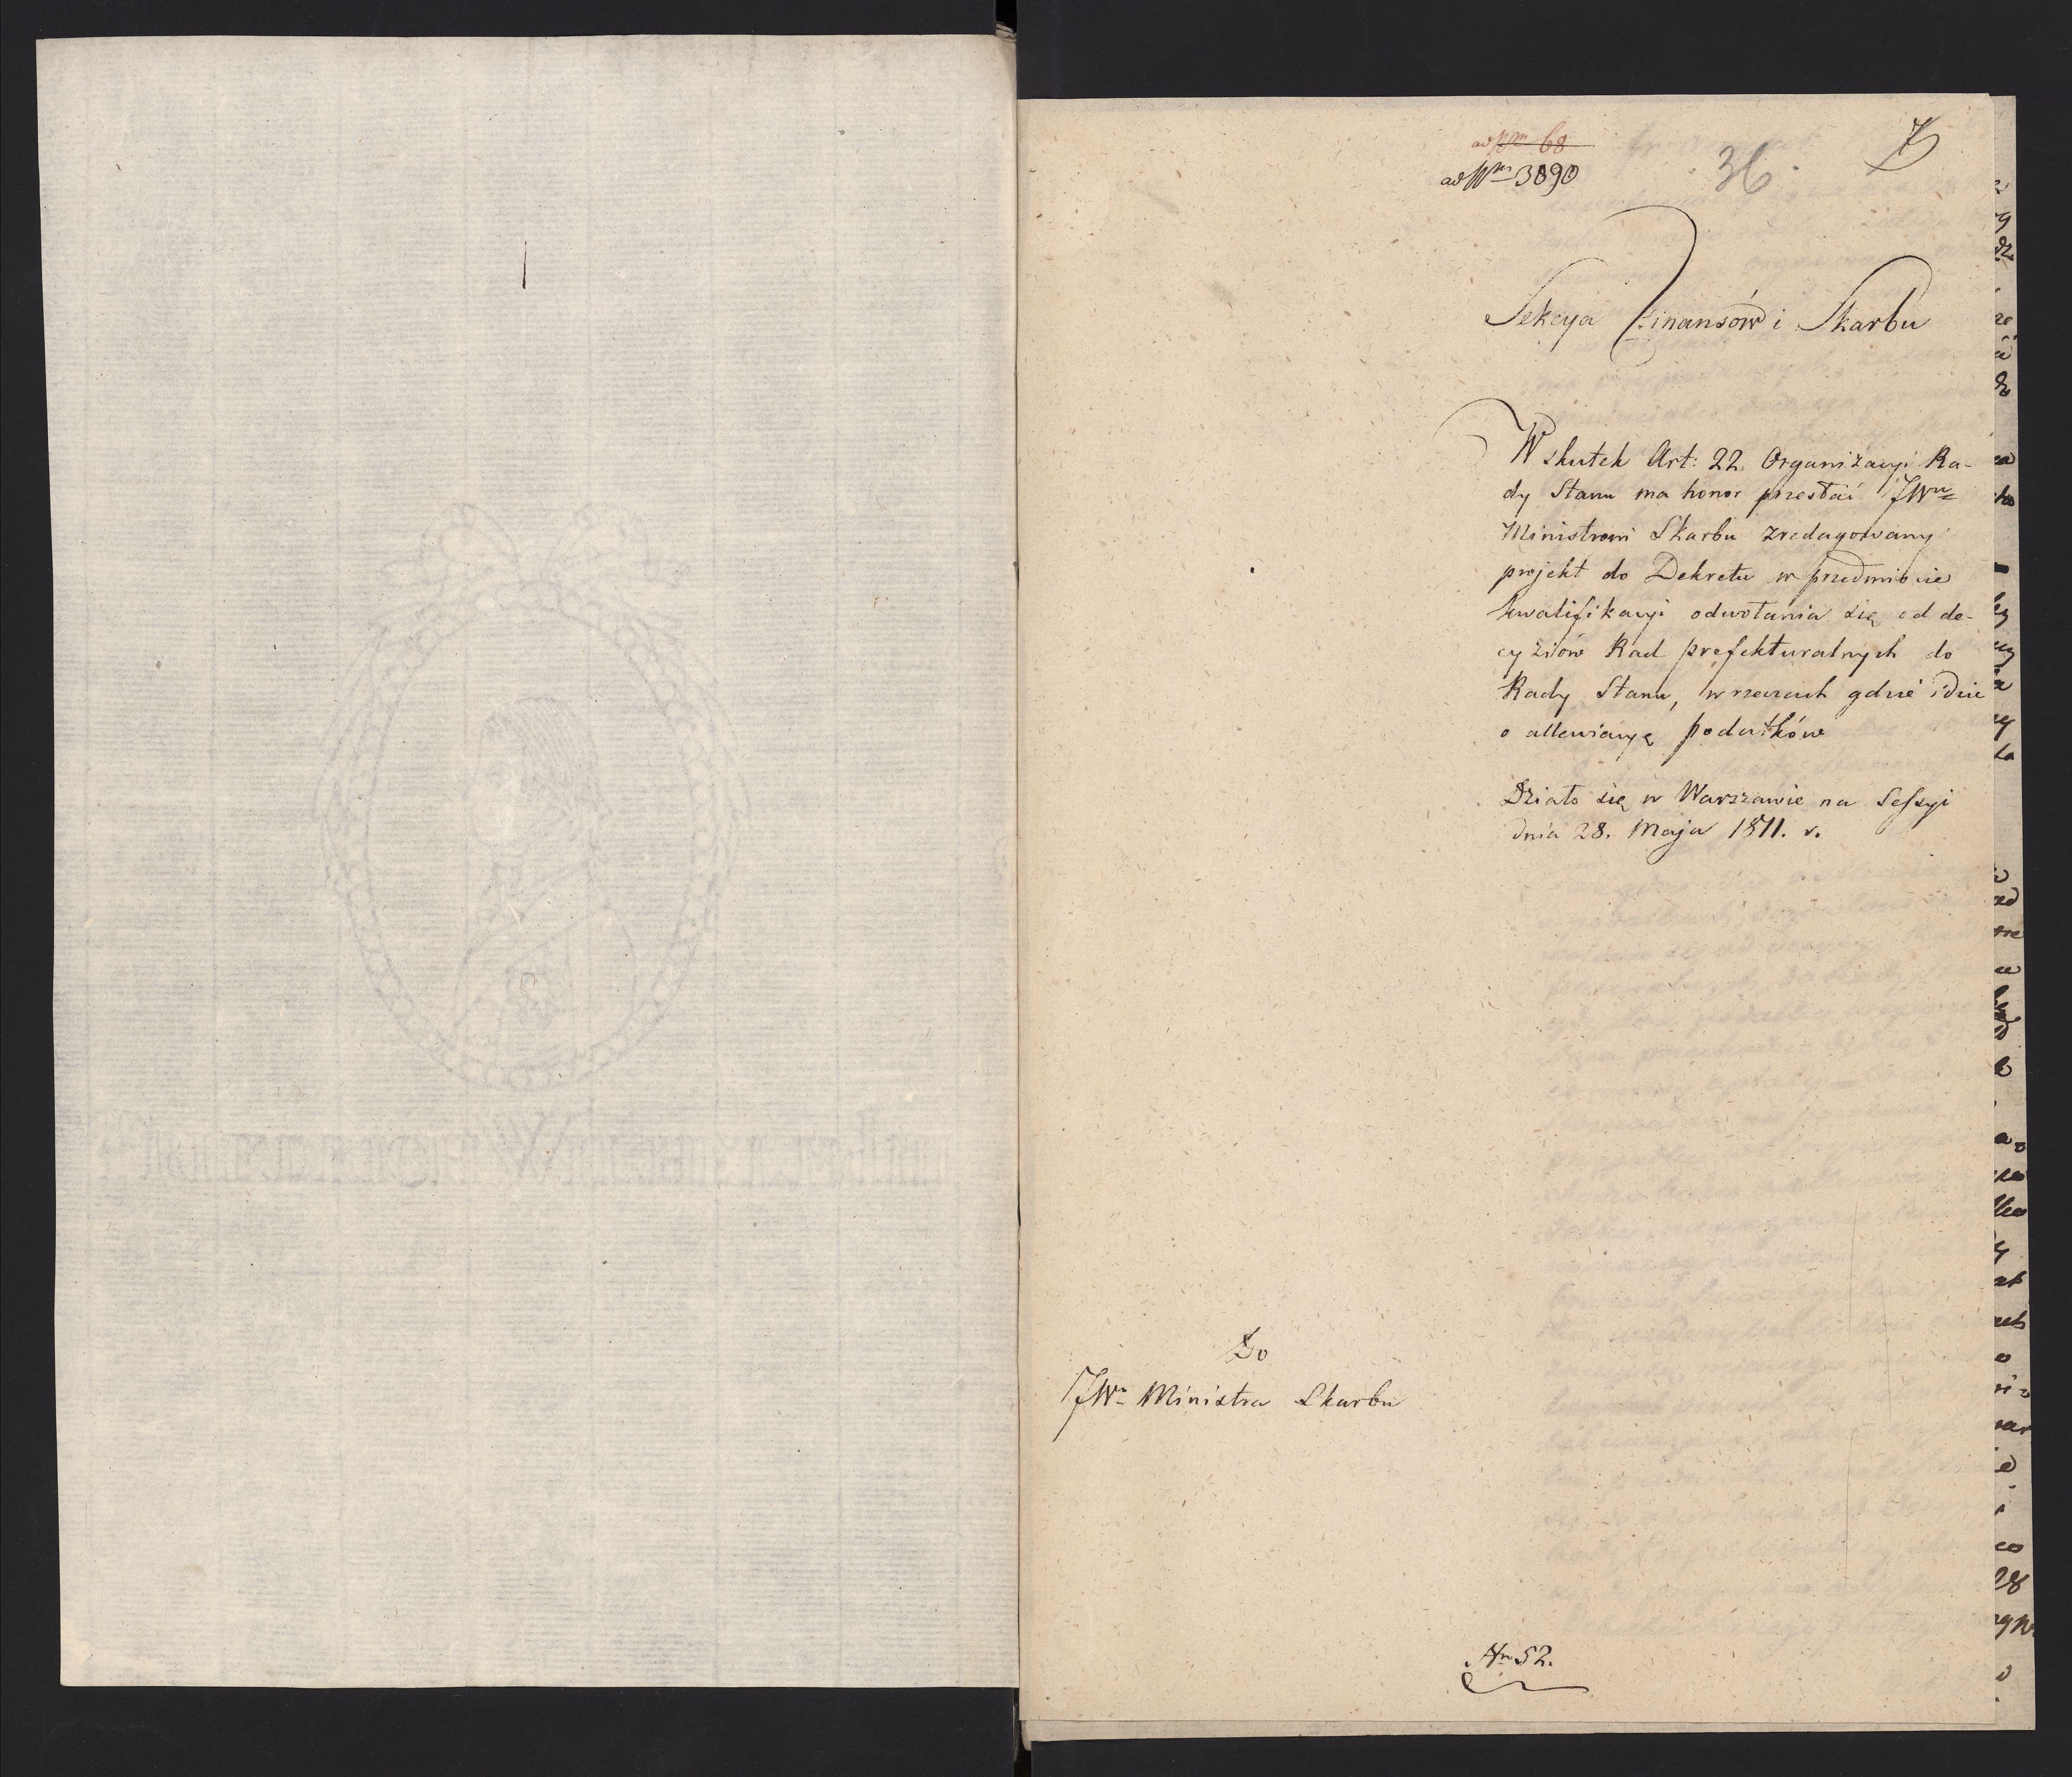 ad Nrm 68
ad Nrm 3090
36.
Sekcya Finansów i Skarbu
W skutek Art: 22. Organizacyi Ra-
dy Stanu ma honor przesłać JWu
Ministrowi Skarbu zredagowany
projekt do Dekretu w przedmiocie
kwalifikacyi odwołania się od de-
cyziów Rad prefekturalnych do
Rady Stanu, w rzeczach gdzie idzie
o allewiacyę podatków
Działo się w Warszawie na Sessyi
dnia 28. Maja 1811. r.
Do
JWo Ministra Skarbu
Nr 52.